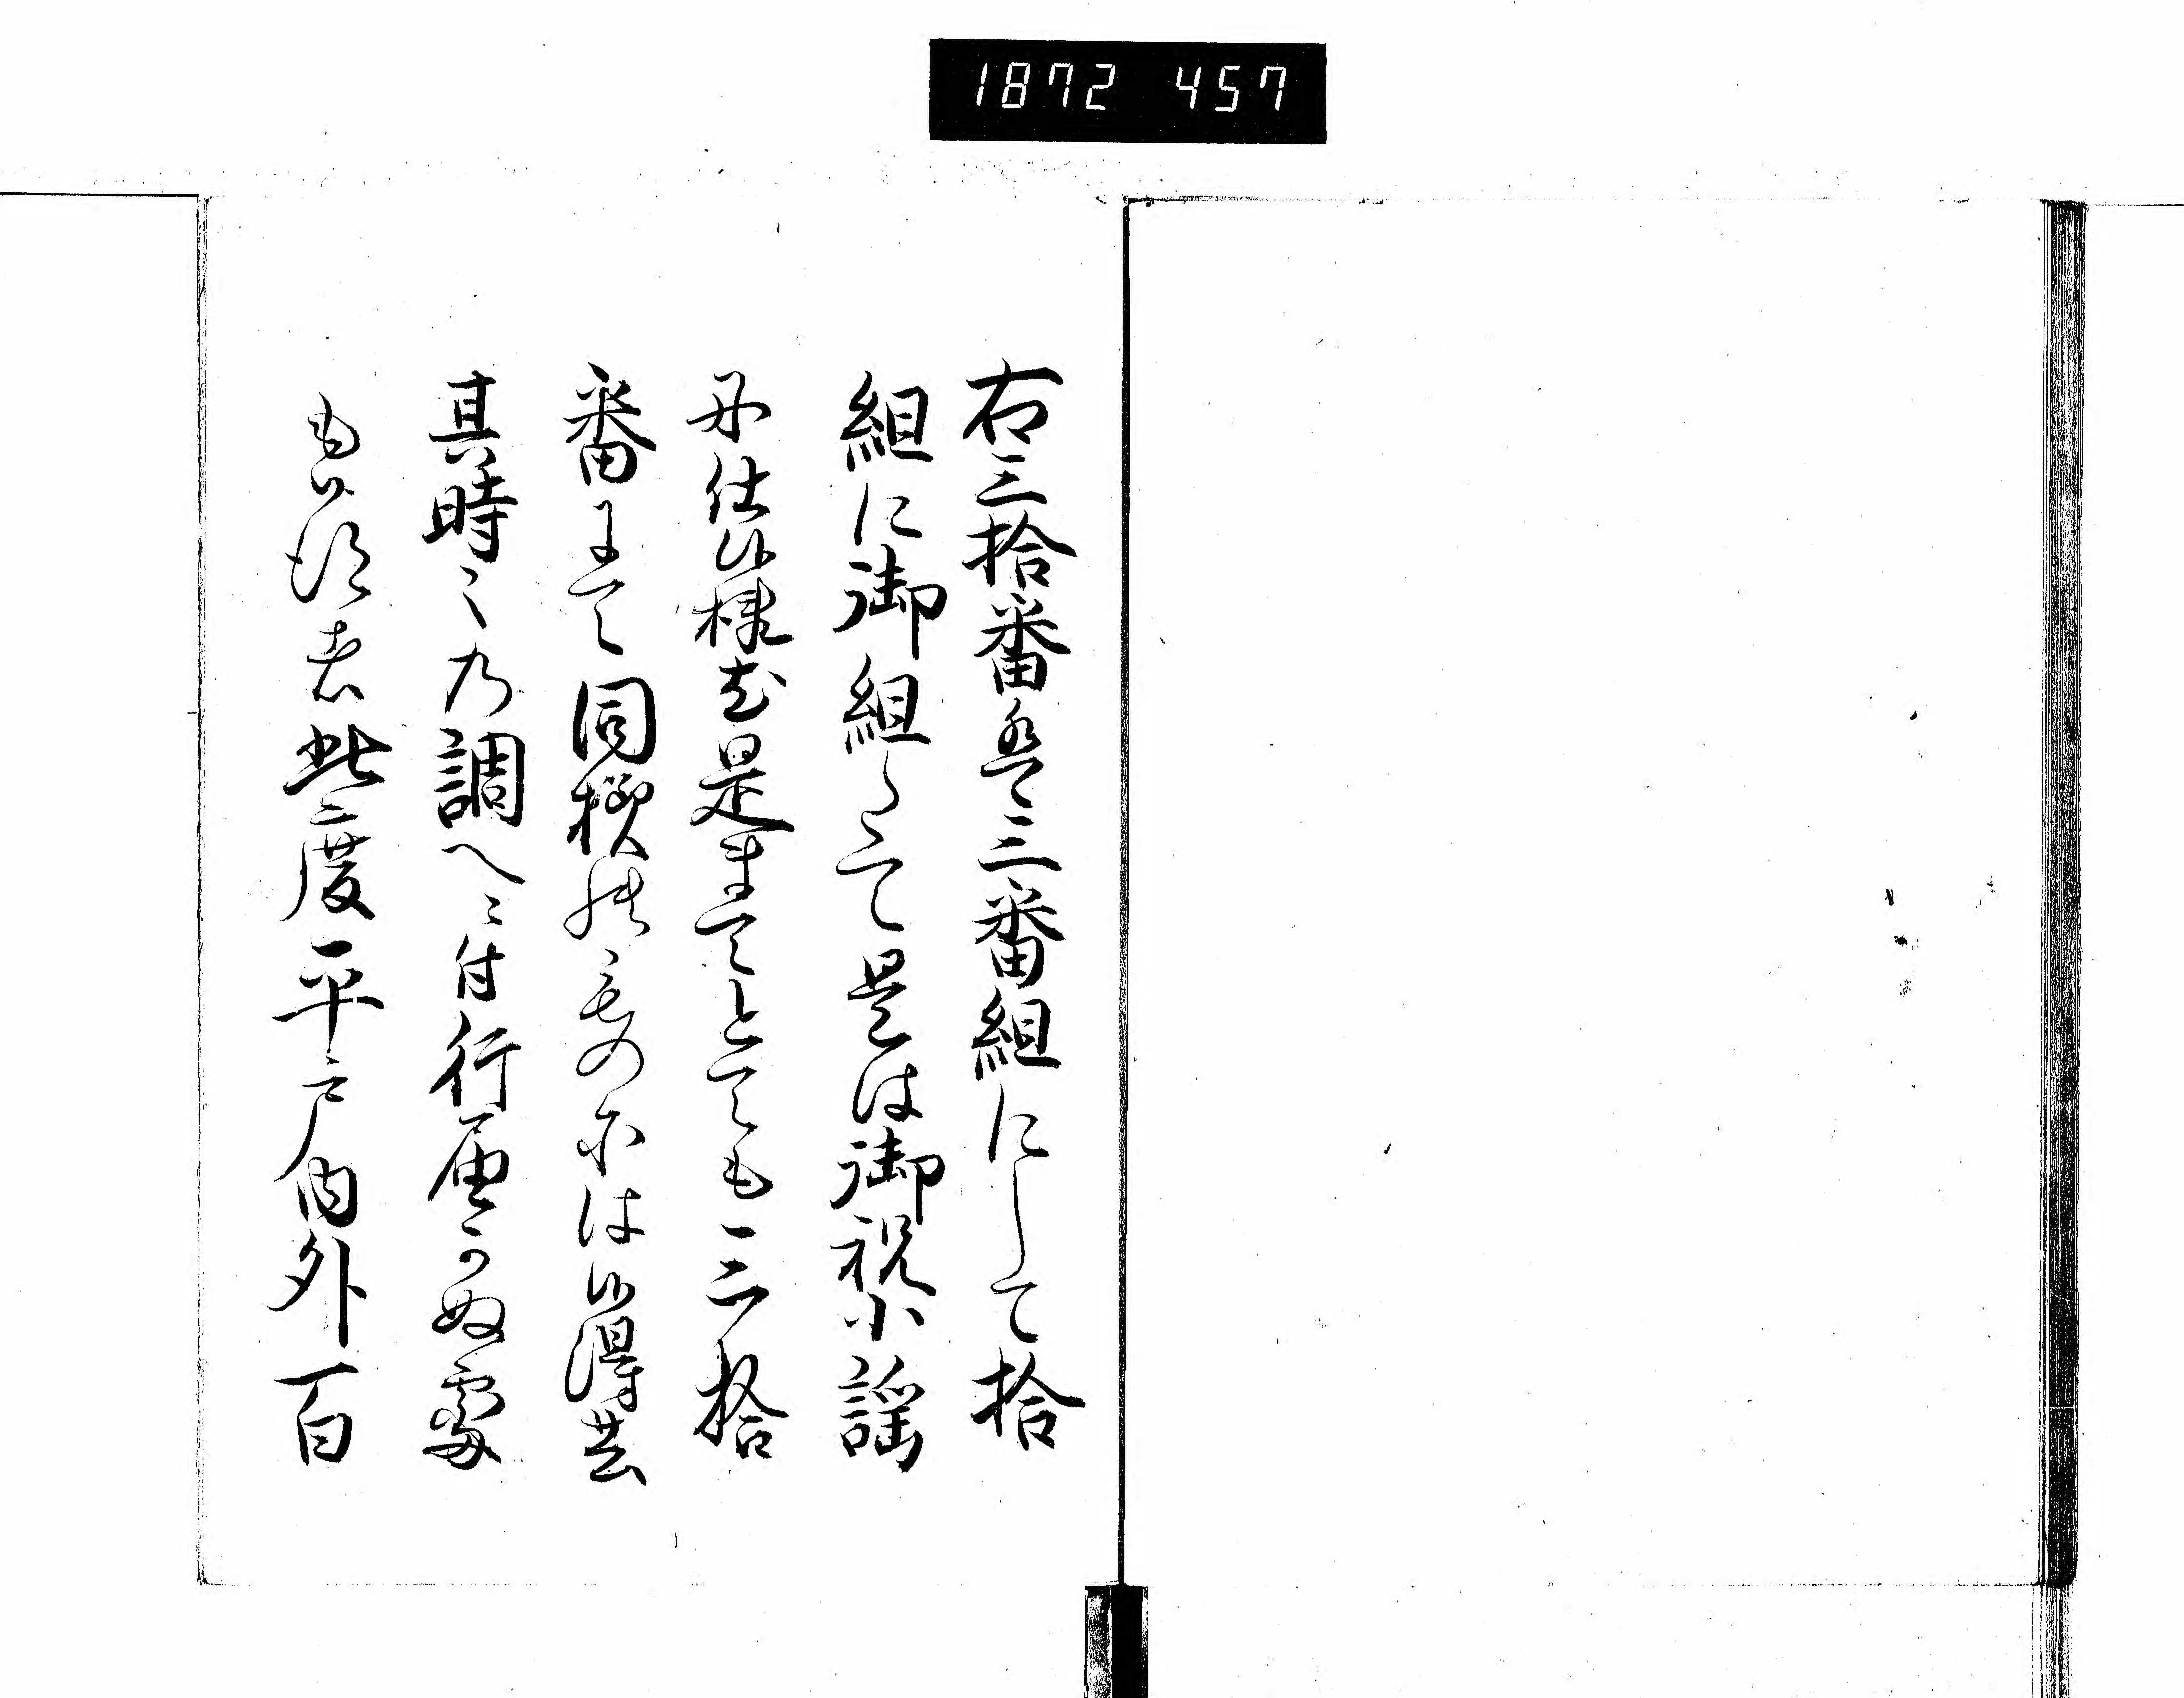 1872 457
右三拾番是三番組にして拾
組に御組して是は御祝小謡
丹仕候様尤是まてとても三拾
番まて同様候ものニは候得共
其時々乃調へニ付行届かぬ處
も候者此度平戸内外百